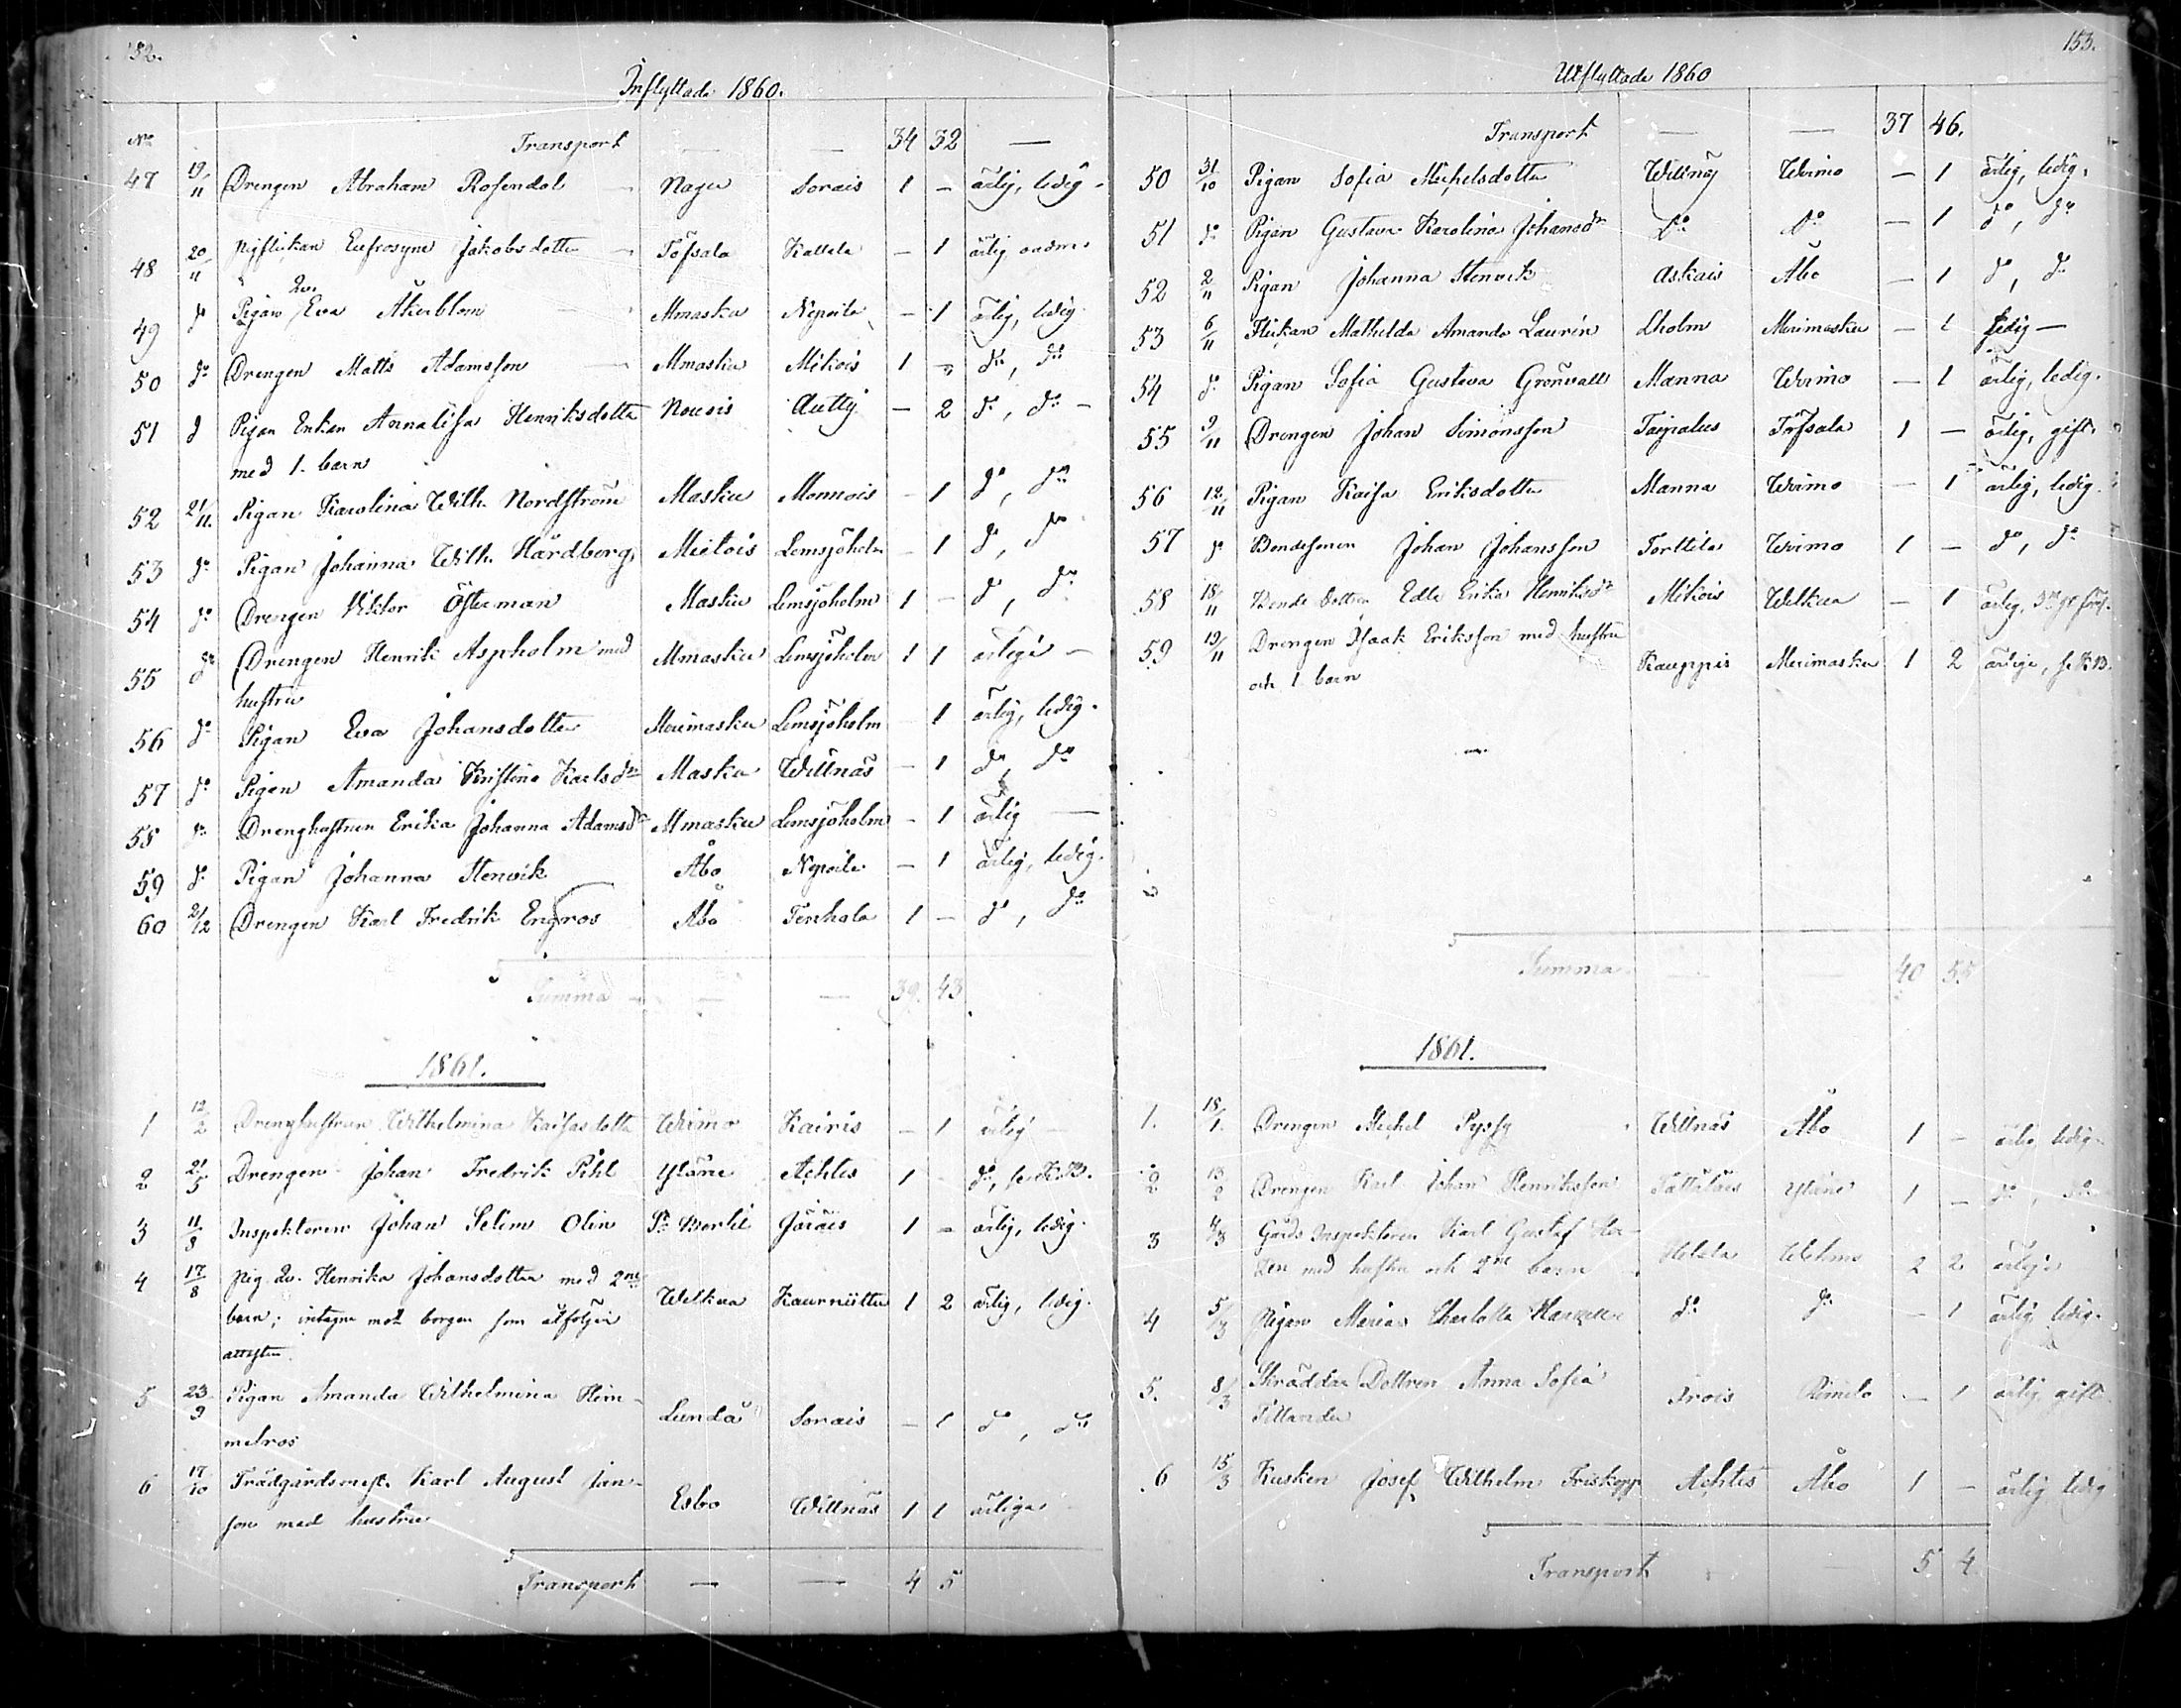 152.
Inflyttade 1860.
No Transport — — 34 32 —
47 19/11 Drengen Abraham Rosendal Nagu Sorais 1 — ärlig, ledig.
48 20/11 Pigflickan Eufrosyne Jakobsdotter Töfsala Kallela — 1 ärlig
49 do Pigan Eva Åkerblom Mmasku Nepoila — 1 ärlig, ledig.
50 do Drengen Matts Adamsson Mmasku Mikois 1 — do, do
51 d Pigan Enkan Annalisa Henriksdotter Nousis Autty — 2 do, do —
med 1. barn
52 21/11. Pigan Karolina Wilh. Nordström Masku Monnois — 1 do, do
53 do Pigan Johanna Wilh. Hårdberg Mietois Lemsjöholm — 1 do, do
54 do Drengen Viktor Österman Masku Lemsjöholm 1 — do, do
55 do Drengen Henrik Aspholm med Mmasku Lemsjöholm 1 1 ärliga —
hustru
56 do Pigan Eva Johansdotter Merimasku Lemsjöholm — 1 ärlig, ledig.
57 do Pigan Amanda Kristina Karlsdr Masku Willnäs — 1 do, do
58 do Drenghustrun Erika Johanna Adamsdr Mmasku Lemsjöholm — 1 ärlig —
59 do Pigan Johanna Stenvik Åbo Nepoila — 1 ärlig, ledig.
60 2/12 Drengen Karl Fredrik Engros Åbo Tenhola 1 — do, do
Summa — — 39. 43
1861.
1 12/2 Drenghustrun Wilhelmina Kaisasdotter Wirmo Kairis — 1 ärlig
2 21/5 Drengen Johan Fredrik Pihl Yläne Achtis 1 do, se K.B.
3 11/8 Inspektoren Johan Selim Olin St Bertil Järäis 1 — ärlig, ledig.
4 17/8 Pig. Henrika Johansdotter med 2ne Welkua Kaurniittu 1 2 ärlig, ledig.
barn; intagne mot borgen som åtföljer
attesten.
5 23/9 Pigan Amanda Wilhelmina Him- Lundä Sorais — 1 do, do
melros
6 17/10 Trädgårdsmest. Karl August Jan- Esbo Willnäs 1 1 ärliga
son med hustru
Transport — — 4 5
153.
Utflyttade 1860
Transport — — 37 46.
50 31/10 Pigan Sofia Michelsdotter Willnäs Wirmo — 1 ärlig, ledig.
51 do Pigan Gustava Karolina Johansdr do do — 1 do, do
52 2/11 Pigan Johanna Stenvik Askais Åbo — 1 do, do
53 6/11 Flickan Mathilda Amanda Laurin Lholm Merimasku — 1 ledig —
54 do Pigan Sofia Gustava Grönvall Manna Wirmo — 1 ärlig, ledig.
55 9/11 Drengen Johan Simonsson Taipalus Töfsala 1 — ärlig, gift.
56 12/11 Pigan Kaisa Eriksdotter Manna Wirmo — 1 ärlig, ledig.
57 do Bondesonen Johan Johansson Torttila Wirmo 1 — do, do
58 18/11 Bonde Dottren Edla Erika Henriksdr Mikois Welkua — 1 ärlig,
59 19/11 Drengen Isaak Eriksson med hustru
och 1 barn Kauppis Merimasku 1 2 ärliga, se K.B.
Summa 40 55
1861.
1. 15/1. Drengen Michel Pyssy Willnäs Åbo 1 — ärlig ledig
2 13/2 Drengen Karl Johan Henriksson Yläne 1 — do, do
3 4/3 Gårds Inspektoren Karl Gustaf
med hustru och 2ne barn Wehmo 2 2 ärliga
4 5/3 Pigan Maria Charlotta do do — 1 ärlig ledig.
5. 8/3 Skräddar Dottren Anna Sofia Irois Rimito — 1 ärlig gift
Tillander
6 15/3 Kusken Josef Wilhelm Friskopp Achtis Åbo 1 — ärlig ledig
Transport 5 4